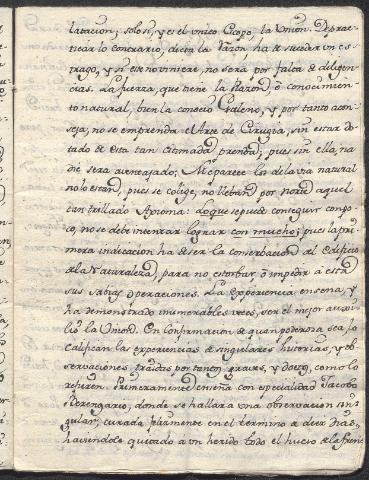 latacion; solo si, y es el vnico Scopo, la Vnion. De prac-
ticar lo contrario, dicta la razon, ha de suceder vn es-
trago, y si este no viniere, no será por falta de diligen-
cias. La fuerza, que tiene la Razon, ò conocimien-
to natural, bien la conociò Galeno, y por tanto acon-
seja, no se emprenda el Arte de Cirugia, sin estar do-
tado de esta tan estimada prenda; pues sin ella, na-
die serà aventajado; Me parece los de la via natural
no lo estan, pues se colige, no lleban por norte aquel
tan trillado Axioma: lo que se puede conseguir con po-
co, no se debe intentar lograr con mucho; pues la pri-
mera indicacion ha de ser la conserbacion del edificio
de la Naturaleza, para no estorbar ò impedir à esta
sus sabias operaciones. La experiencia enseña, y
ha demonstrado inumerables veces, ser el mejor auxi-
lio la Vnion. En confirmacion de quan poderosa sea, lo
califican las experiencias de singulares historias, y ob-
servaciones traidas por tantos graves, y doctos, como lo
refieren. Primeramente enseña con especialidad Jacobo
Berengario, donde se hallara vna observacion sin-
gular, curada felizmente en el termino de diez dias,
haviendole quitado à vn herido todo el hueso de la frente